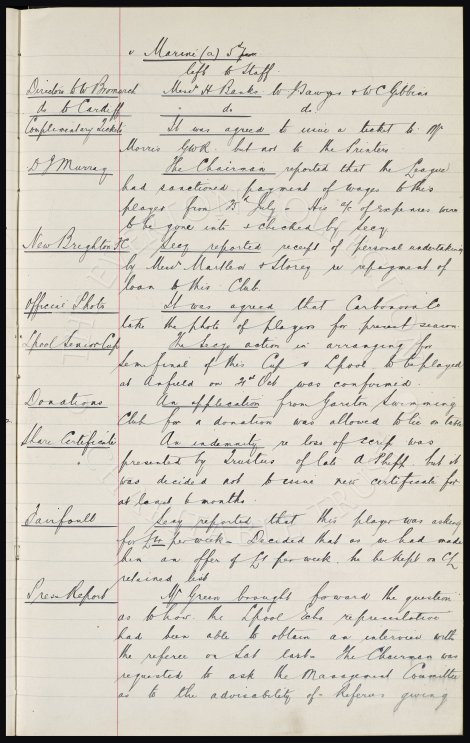 v Marine (a) 5th
left to Staff
Directors to to Bromarch Messrs H Banks to Sawyer & W C Gibbins
do to Cardiff do do
Complimentary Tickets It was agreed to issue a ticket to Mr
Morris GWR. but not to the Printers.
D J Murray The Chairman reported that the League
had sanctioned payment of wages to this
player from 25th July - His a/c of expenses were
to be gone into & checked by Secy.
New Brighton FC Secy reported receipt of personal undertaking
by Messrs Martled & Storey re repayment of
loan to this Club.
Official Photo It was agreed that Carbonora Co
take the photo of players for present season.
Lpool Senior Cup The Secys action in arranging for
Semi final of this Cup v Lpool to be played
at Anfield on 21st Oct was confirmed.
Donations An application from Garston Swimming
Club for a donation was allowed to lie on table
Share Certificate An indemnity re loss of scrip was
presented by Trustees of late A but it
was decided not to issue new certificate for
at least 6 months.
Fairfoull Secy reported that this player was asking
for per week - Decided that as we had made
him an offer of per week, he be kept on
retained list
Press Report Mr Green brought forward the question
as to how the Lpool Echo representative
had been able to obtain an interview with
the referee on Sat last - The Chairman was
requested to ask the Management Committee
as to the advisability of - Referees giving